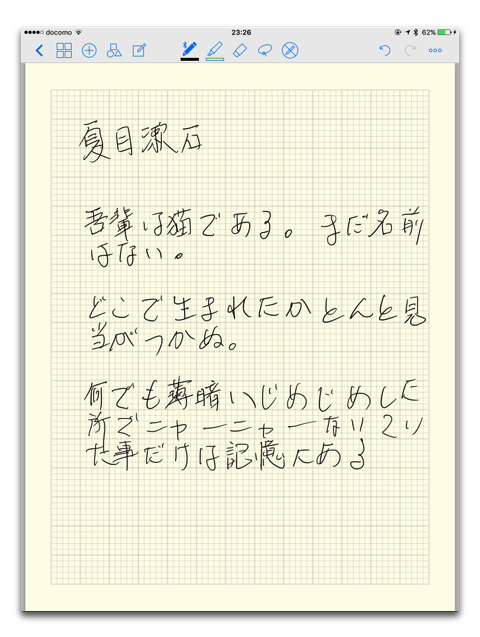 docomo 23:26 62%
夏目漱石
吾輩は猫である。まだ名前
はない。
どこで生まれたかとんと見
当がつかぬ。
何でも薄暗いじめじめした
所でニャーニャーないてい
た事だけは記憶にある